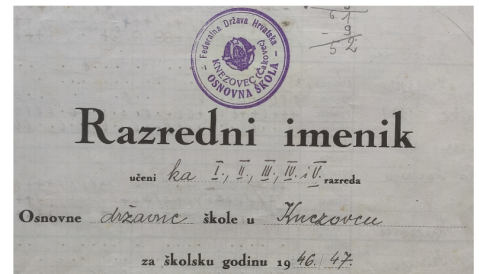 61
- 9
52
Federalna Država Hrvatska
KNEZOVEC (Čakovec)
OSNOVNA ŠKOLA
Razredni imenik
učeni ka I., II., III., IV. i V. razreda
Osnovne državne škole u Knezovcu
za školsku godinu 1946. 47.